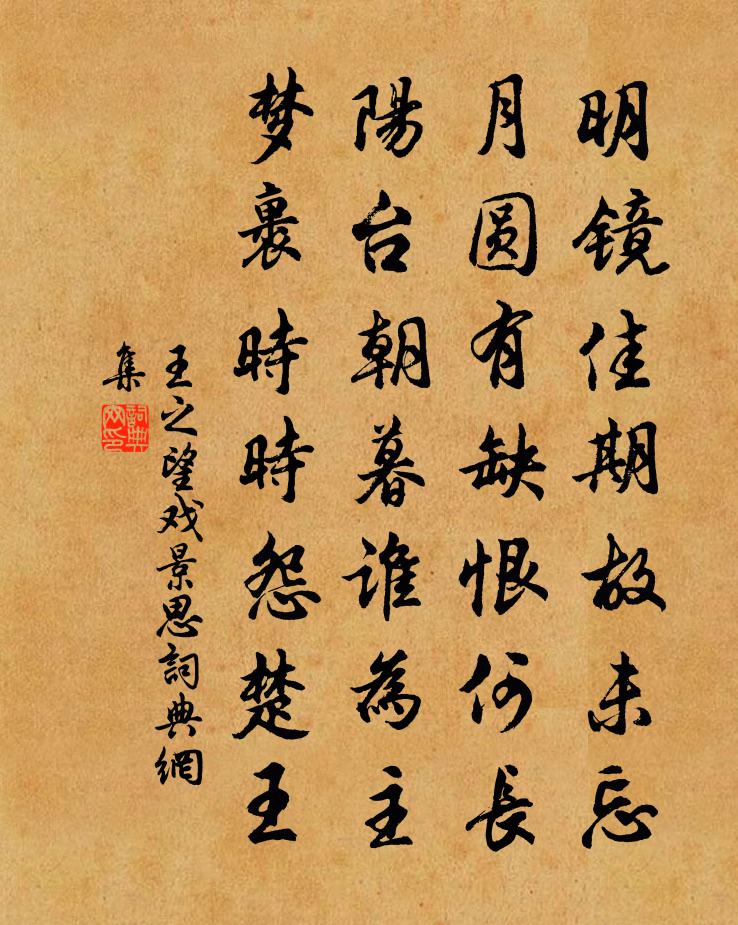 明镜佳期故未忘
月圆有缺恨何長
陽台朝暮谁為主
梦裏時時怨楚王
王之望戏景思詞典網
集
詞典
网印